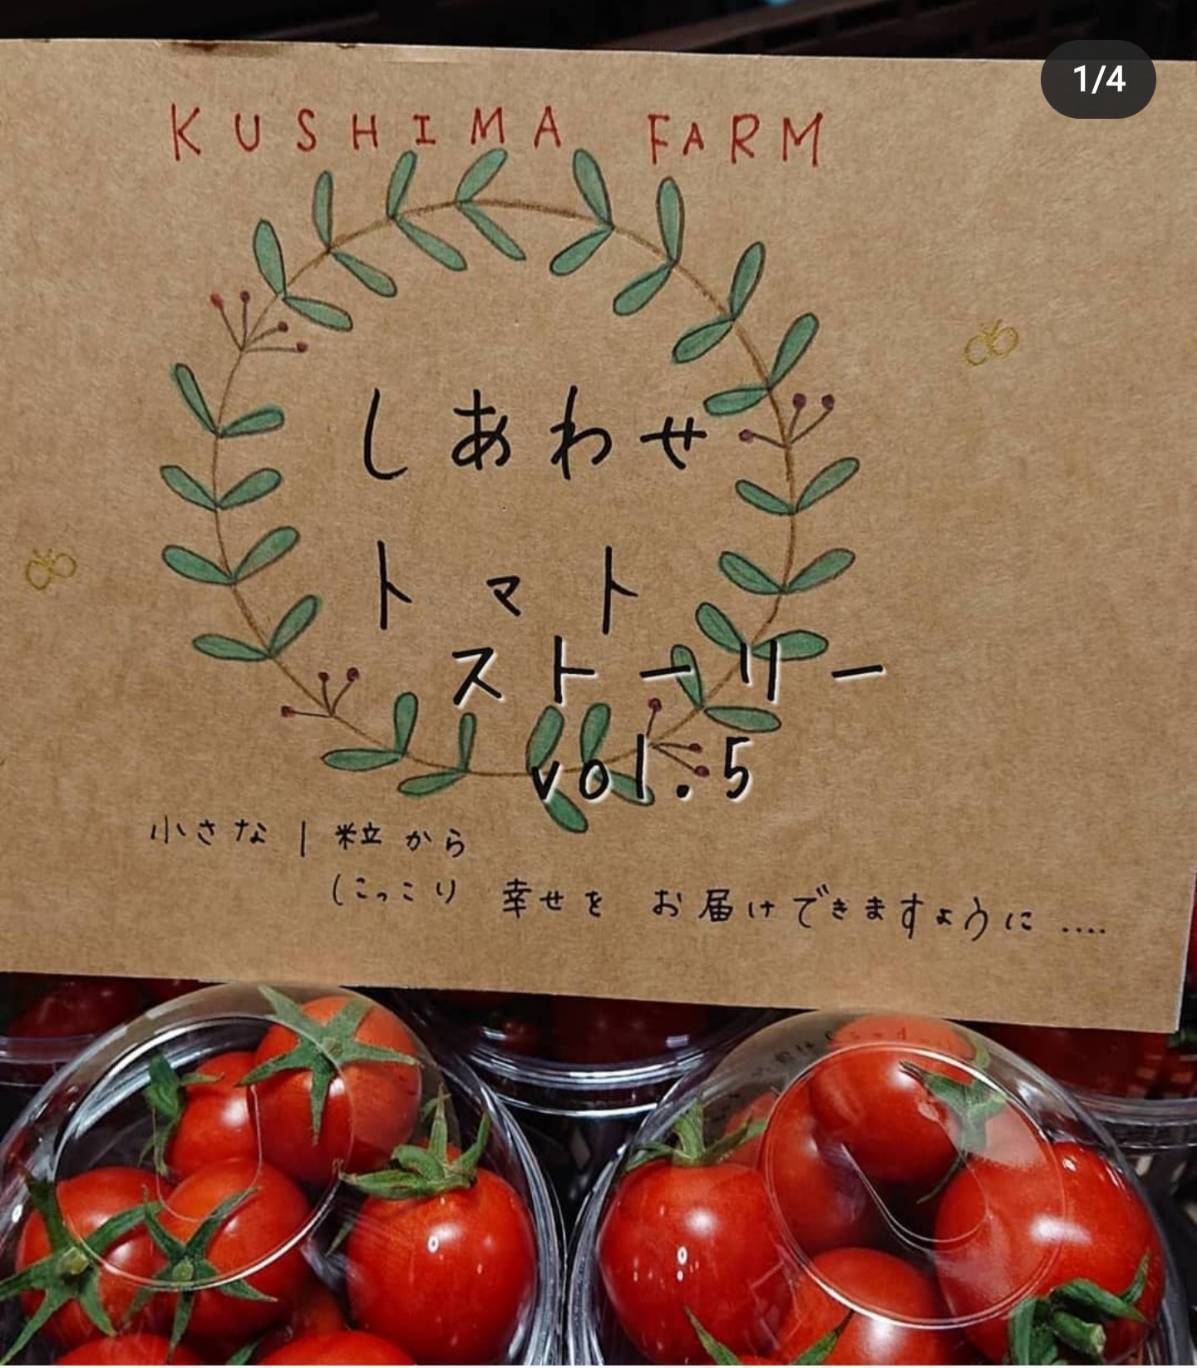 1/4
KUSHIMA FARM
しあわせ
トマト
ストーリー
vol.5
小さな1粒から
にっこり 幸せを お届けできますように....